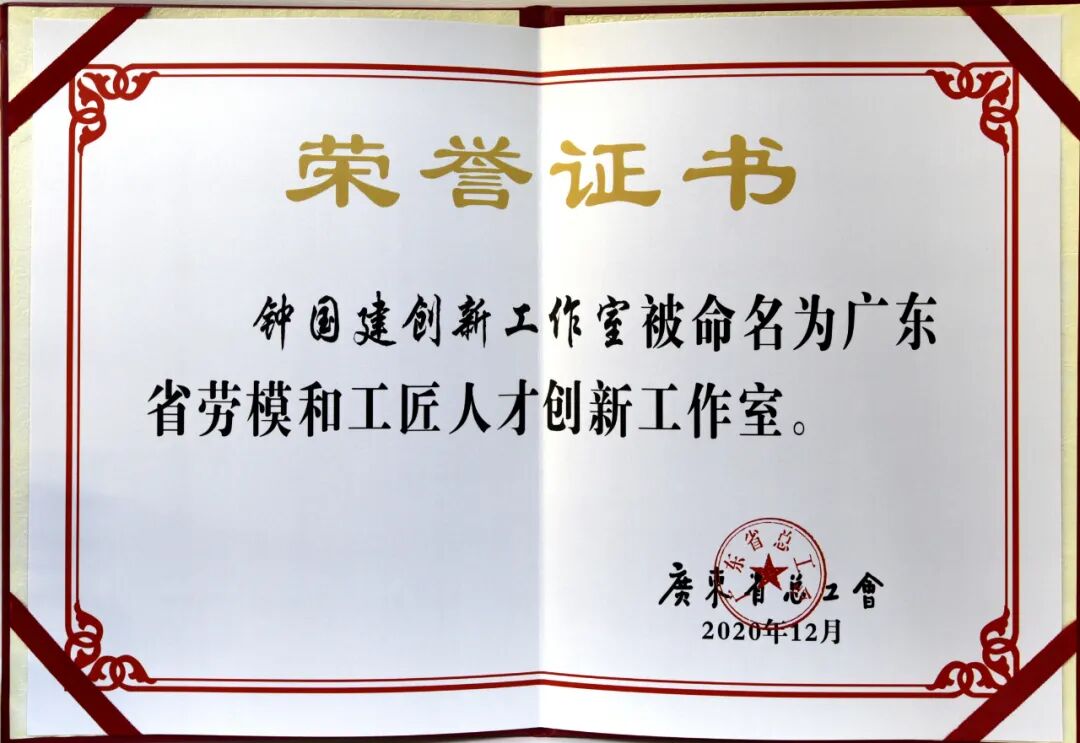 荣誉证书
钟国建创新工作室被命名为广东
省劳模和工匠人才创新工作室。
廣東省总工會
广东省总工会
2020年12月